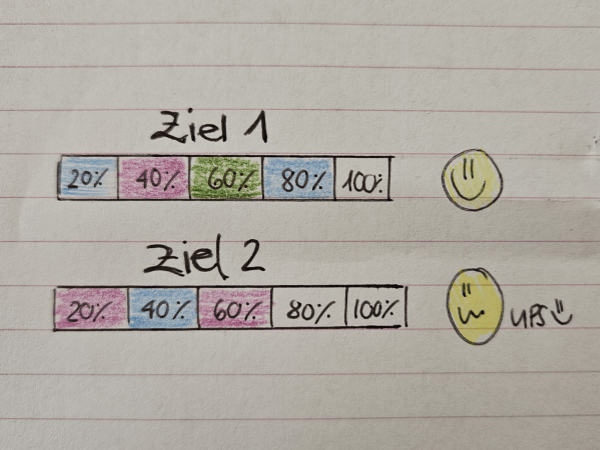 Ziel 1
20% 40% 60% 80% 100%
Ziel 2
20% 40% 60% 80% 100%
UPS